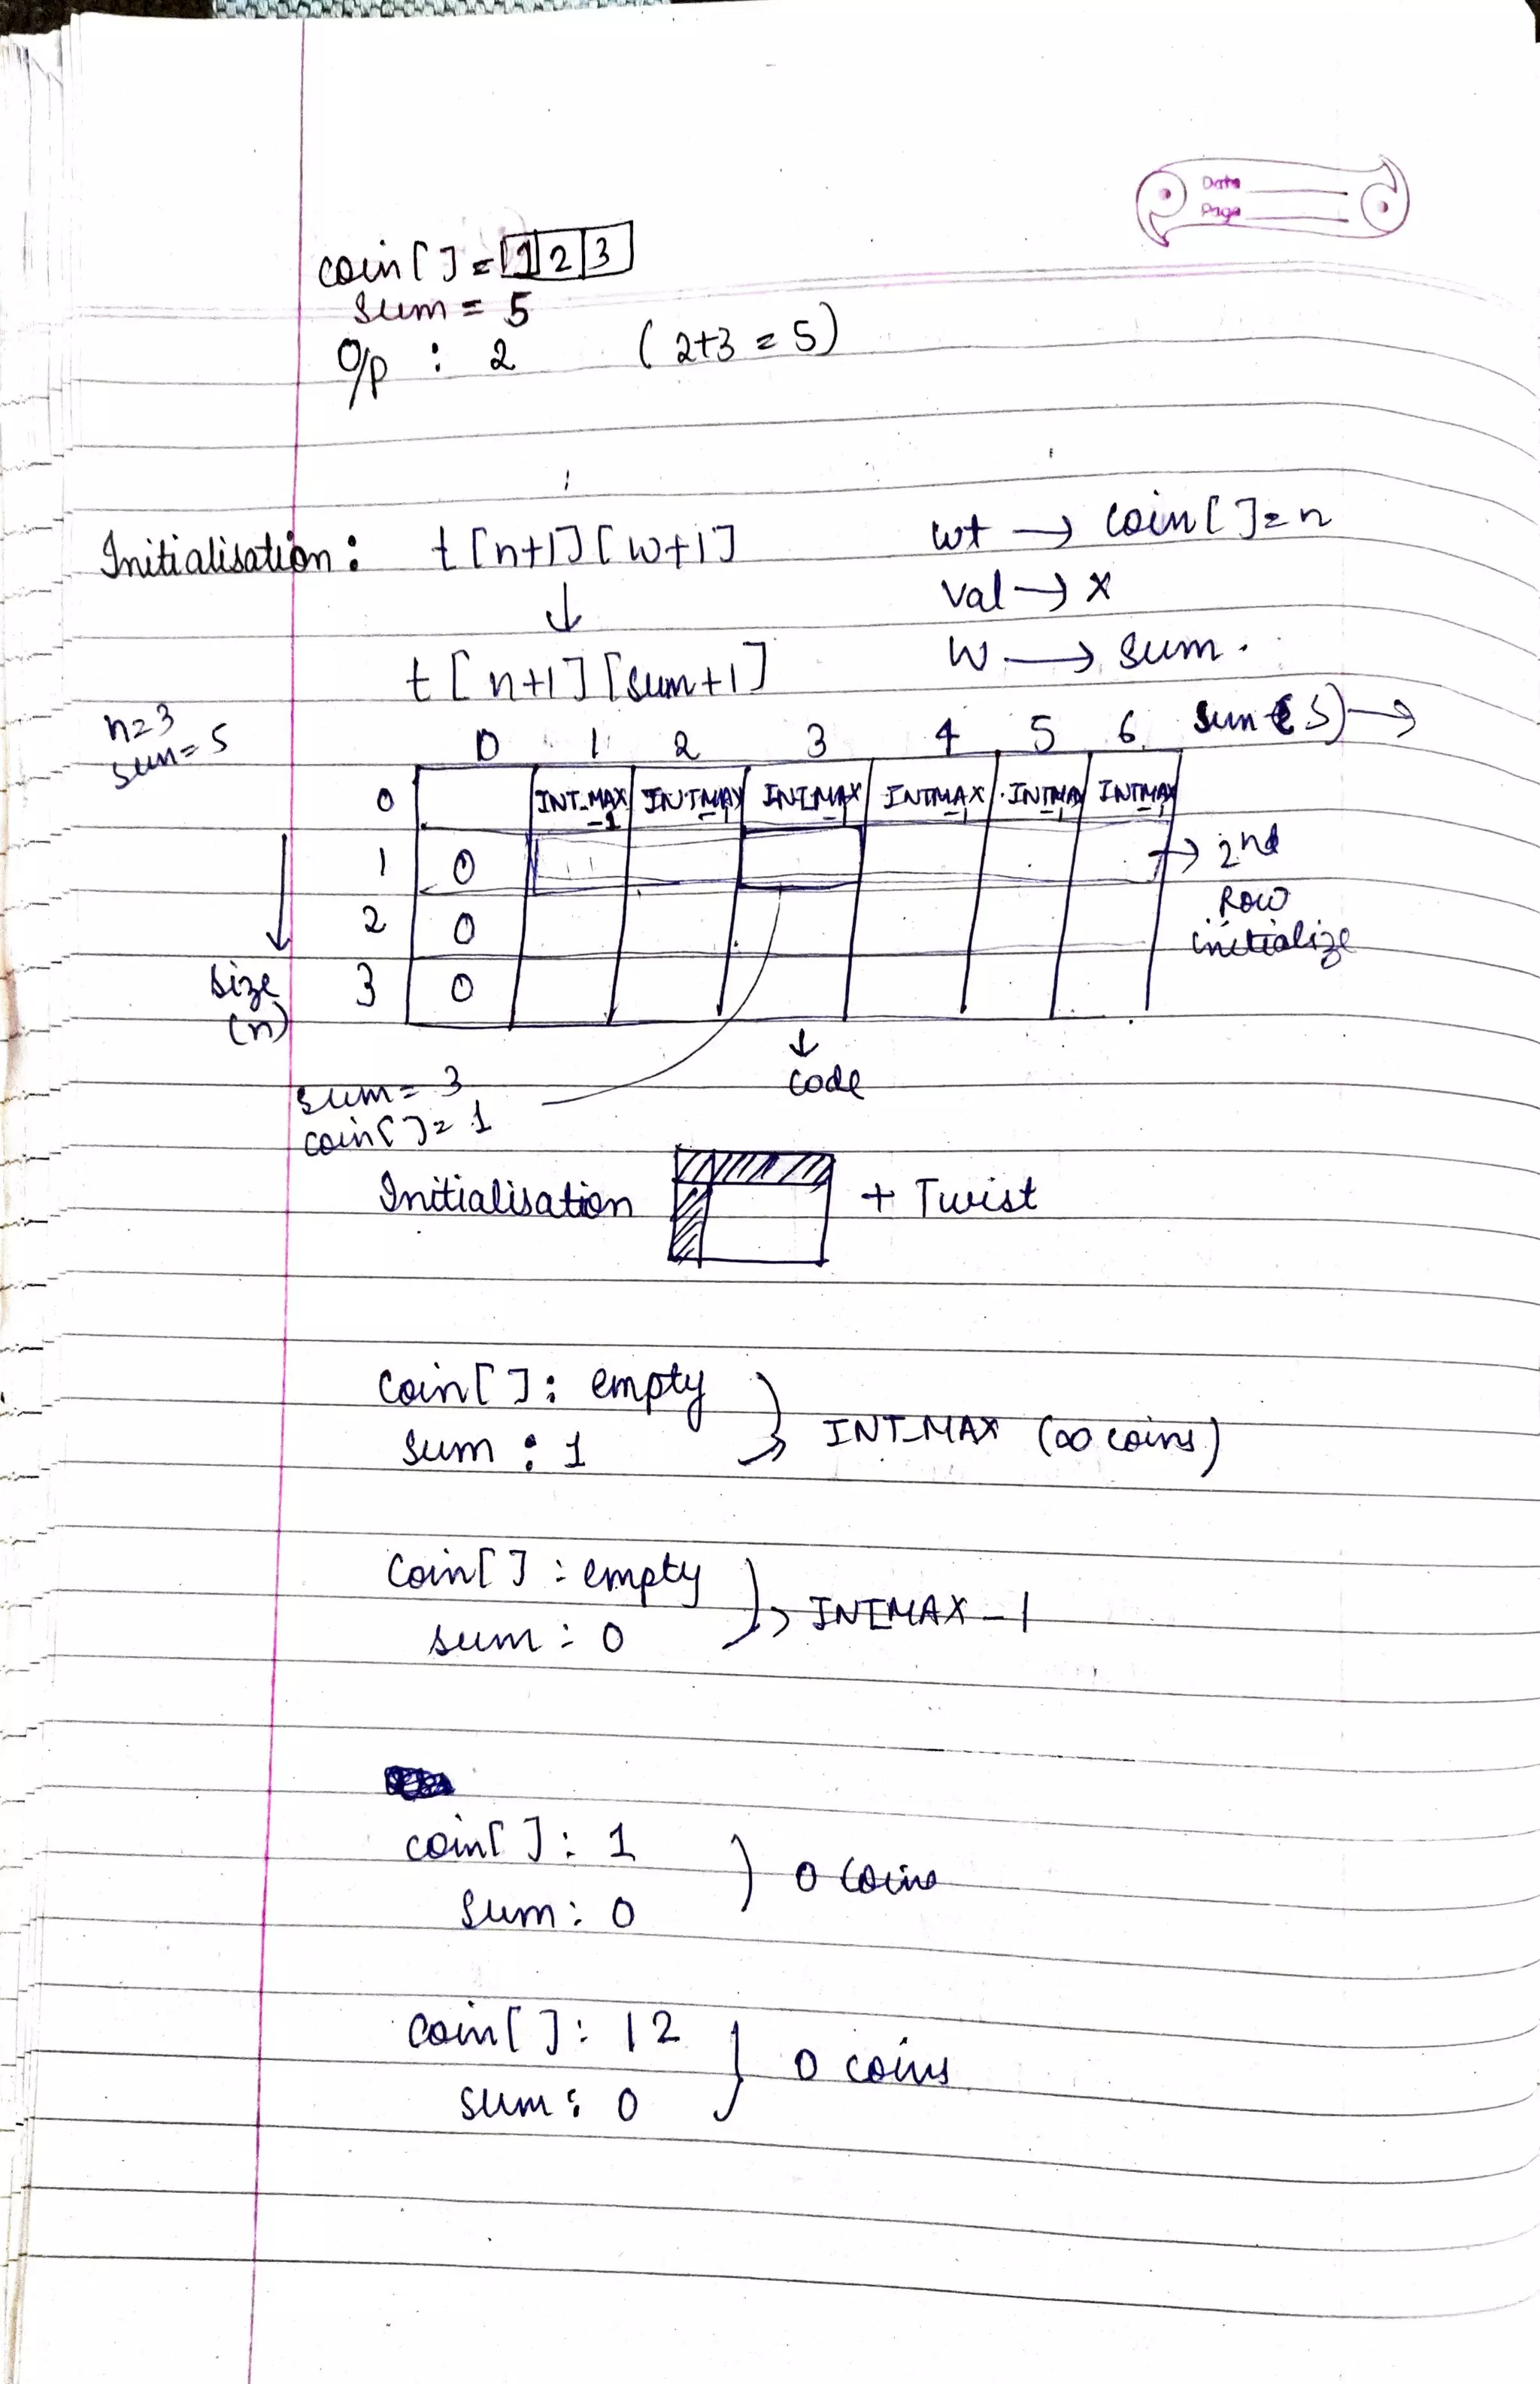 Date
Page
coin[ ] = 1 2 3
sum = 5
O/p : 2 (2+3 = 5)
Initialisation : t[n+1][w+1] wt → coin[ ] = n
↓ val → x
t[n+1][sum+1] W → sum.
n=3
sum = 5
0 1 2 3 4 5 6 sum (S) →
0 INT_MAX -1 INT_MAX -1 INT_MAX -1 INTMAX -1 INTMAX -1 INTMAX -1
1 0 → 2nd
Row
initialize
2 0
3 0
size
(n)
↓
code
sum = 3
coin[ ] = 1
Initialisation + Twist
coin[ ] : empty
sum : 1
INT_MAX (∞ coins)
coin[ ] : empty
sum : 0
INT_MAX - 1
coin[ ] : 1
sum : 0
0 coins
coin[ ] : 1 2
sum : 0
0 coins